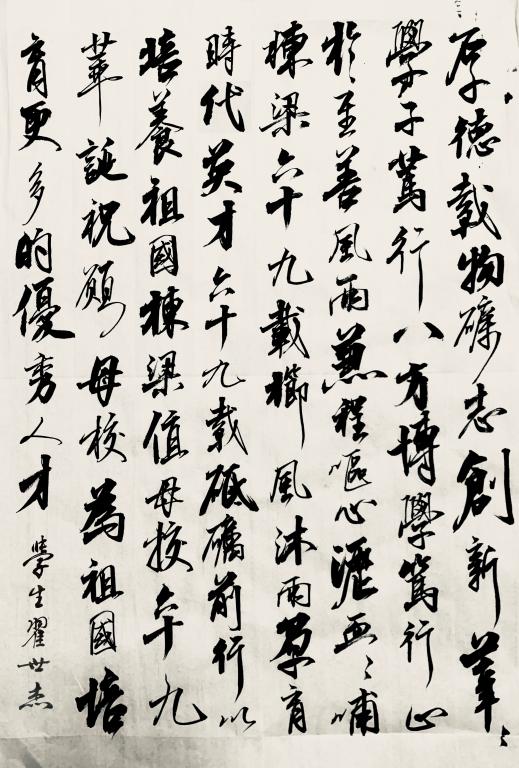 厚德載物礪志創新莘々
學子篤行八方博學篤行止
於至善風雨兼程嘔心瀝血々哺
棟梁六十九載櫛風沐雨孕育
時代英才六十九載砥礪前行以
培養祖國棟梁值母校六十九
華誕祝願母校為祖國培
育更多的優秀人才
學生翟世杰